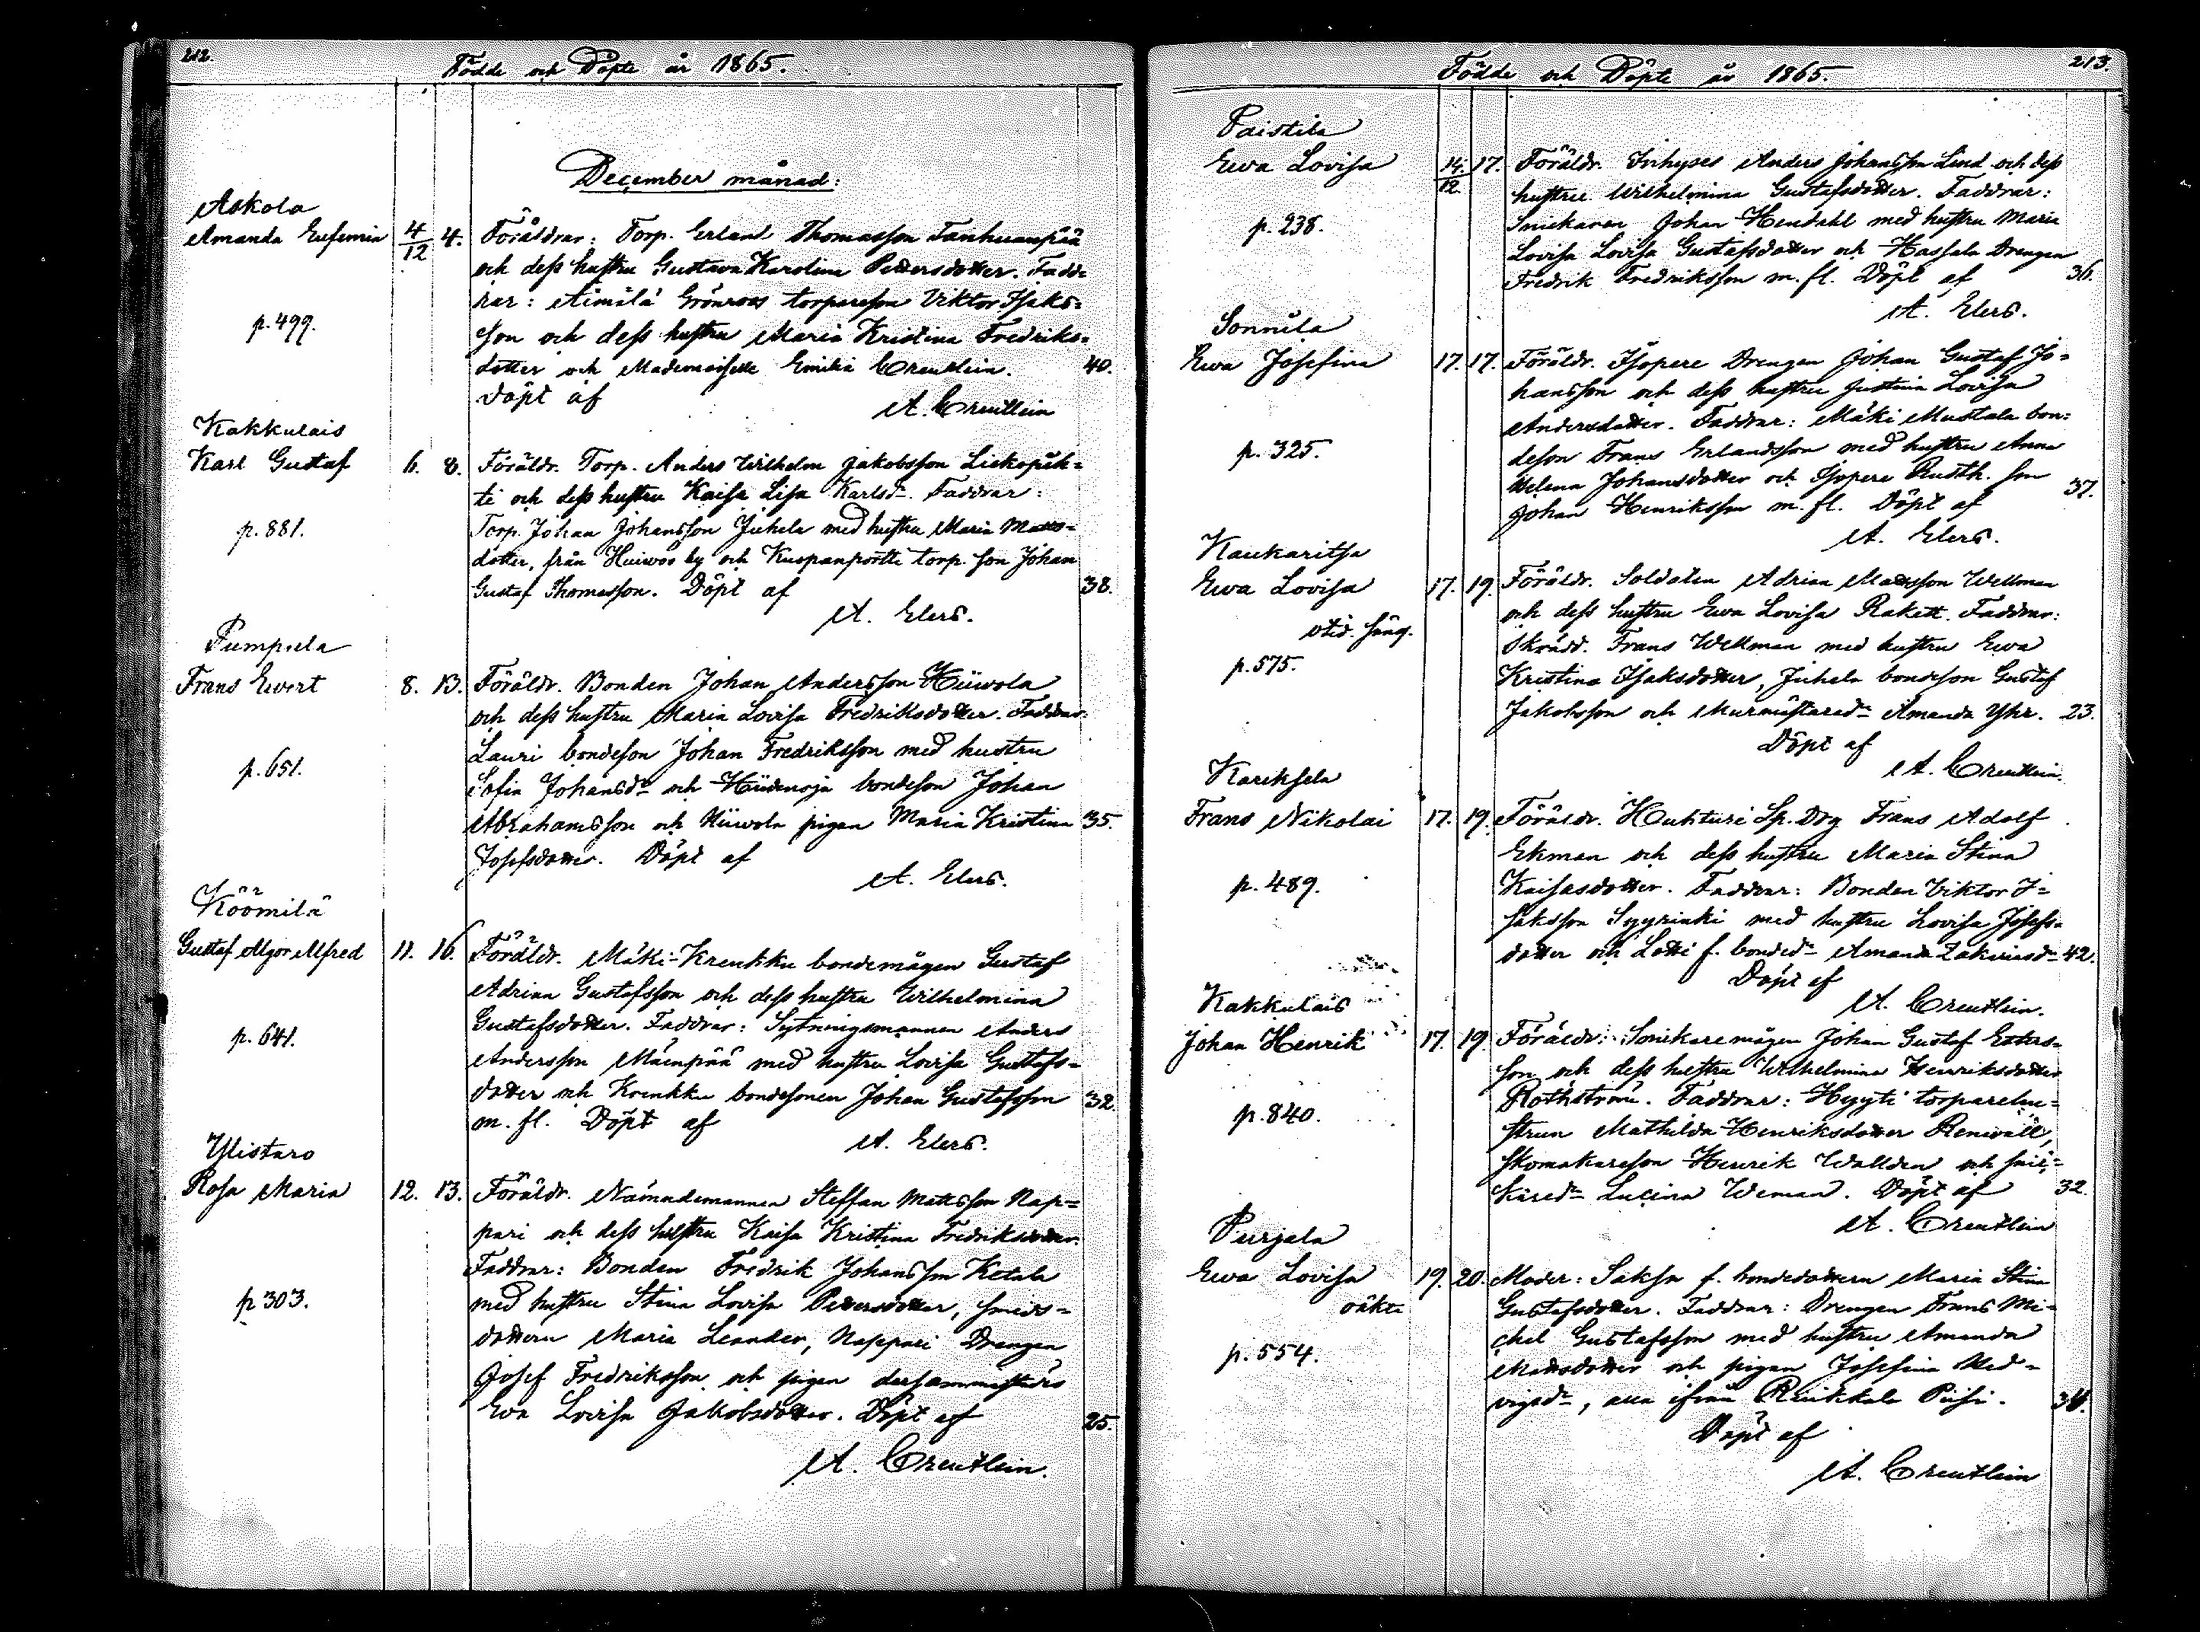 212.
Födde och Döpte år 1865.
December månad:
Askola
Amanda Eufemia 4/12 4. Föräldrar: Torp. Erland Thomasson Tanhuanpää
och dess hustru Gustava Karolina Pettersdotter. Fadd-
rar: Äimälä Grönroos torpareson Viktor Isaks-
son och dess hustru Maria Kristina Fredriks-
p. 499.
dotter och Mademoiselle Emilia Creutlein. 40.
Döpt af
A. Creutlein
Kakkulais
Karl Gustaf 6. 8. Föräldr. Torp. Anders Wilhelm Jakobsson
och dess hustru Kaisa Lisa Karlsd:r Faddrar:
p. 881.
Torp. Johan Johansson Juhela med hustru Maria Matts-
dotter, från by och Kuspanportti torp. son Johan
Gustaf Thomasson. Döpt af 38.
A. Elers.
Pumpula
Frans Evert 8. 13. Föräldr. Bonden Johan Andersson Hiivola
och dess hustru Maria Lovisa Fredriksdotter. Faddrar:
Lauri bondeson Johan Fredriksson med hustru
p. 651.
Sofia Johansd:r och Hiidenoja bondeson Johan
Abrahamsson och Hiivola pigan Maria Kristina 35.
Josefsdotter. Döpt af
A. Elers.
Köömilä
Gustaf Algot Alfred 11. 16. Föräldr. Mäki-Krenkku bondemågen Gustaf
Adrian Gustafsson och dess hustru Wilhelmina
Gustafsdotter. Faddrar: Sytningsmannen Anders
p. 641.
Andersson Mäenpää med hustru Lovisa Gustafs-
dotter och Krenkku bondesonen Johan Gustafsson 32.
m. fl. Döpt af
A. Elers.
Ylistaro
Rosa Maria 12. 13. Föräldr. Nämndemannen Steffan Mattsson Nap-
pari och dess hustru Kaisa Kristina Fredriksdotter.
Faddrar: Bonden Fredrik Johansson Ketala
p 303.
med hustru Stina Lovisa Pettersdotter, smeds-
dottern Maria Leander, Nappari Drengen
Josef Fredriksson och pigan dersammastädes
Eva Lovisa Jakobsdotter. Döpt af 25.
A. Creutlein.
213.
Födde och Döpte år 1865.
Paistila
Ewa Lovisa 14./12. 17. Föräldr. Inhyses Anders Johansson Lind och dess
hustru Wilhelmina Gustafsdotter. Faddrar:
p. 238.
Snickaren Johan Hendahl med hustru Maria
Lovisa Lovisa Gustafsdotter och Hassala Drengen
Fredrik Fredriksson m. fl. Döpt af 36.
A. Elers.
Sonnila
Ewa Josefina 17. 17. Föräldr. Isopere Drengen Johan Gustaf Jo-
hansson och dess hustru Justina Lovisa
Andersdotter. Faddrar: Mäki Mustala bon-
p. 325.
deson Frans Erlandsson med hustru Anna
Helena Johansdotter och Isopere Rusth. son 37.
Johan Henriksson m. fl. Döpt af
A. Elers.
Kaukaritsa
Ewa Lovisa 17. 19. Föräldr. Soldaten Adrian Mattsson Wellman
och dess hustru Ewa Lovisa Rakett. Faddrar:
otid. säng.
Skrädd. Frans Wellman med hustru Ewa
p. 575.
Kristina Isaksdotter, Juhela bondeson Gustaf
Jakobsson och Murmästared:r Amanda Yhr. 23.
Döpt af
A. Creutlein.
Kareksela
Frans Nikolai 17. 19. Föräldr. Huhturi Sp. Drg Frans Adolf
Ekman och dess hustru Maria Stina
p. 489.
Kaisasdotter. Faddrar: Bonden Viktor I-
saksson Syyrinki med hustru Lovisa Josefs-
dotter och Lotti f. bonded:r Amanda Zakariasd:r 42.
Döpt af
A. Creutlein.
Kakkulais
Johan Henrik 17. 19. Föräldr: Snickaremågen Johan Gustaf
son och dess hustru Wilhelmina Henriksdotter
Rothström. Faddrar: Hyyti torparehu-
p. 840.
strun Mathilda Henriksdotter Renwall,
skomakareson Henrik Wallden och snic-
kared:r Lucina Weman. Döpt af 32.
A. Creutlein
Purjala
Ewa Lovisa 19. 20. Moder: Saksa f. bondedottern Maria Stina
oäkta
Gustafsdotter. Faddrar: Drengen Frans Mi-
chel Gustafsson med hustru Amanda
p. 554.
Mattsdotter och pigan Josefina Hed-
vigsd:r, alla ifrån Ruikkala Piisi. 34.
Döpt af
A. Creutlein